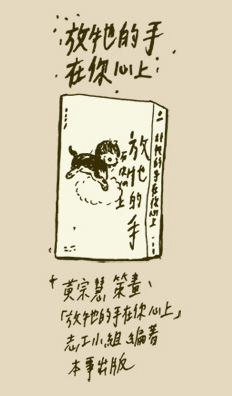 放牠的手
在你心上
放牠的手
在你心上
放牠的手在你心上
黃宗慧 策畫、
「放牠的手在你心上」
志工小組 編著
本事出版